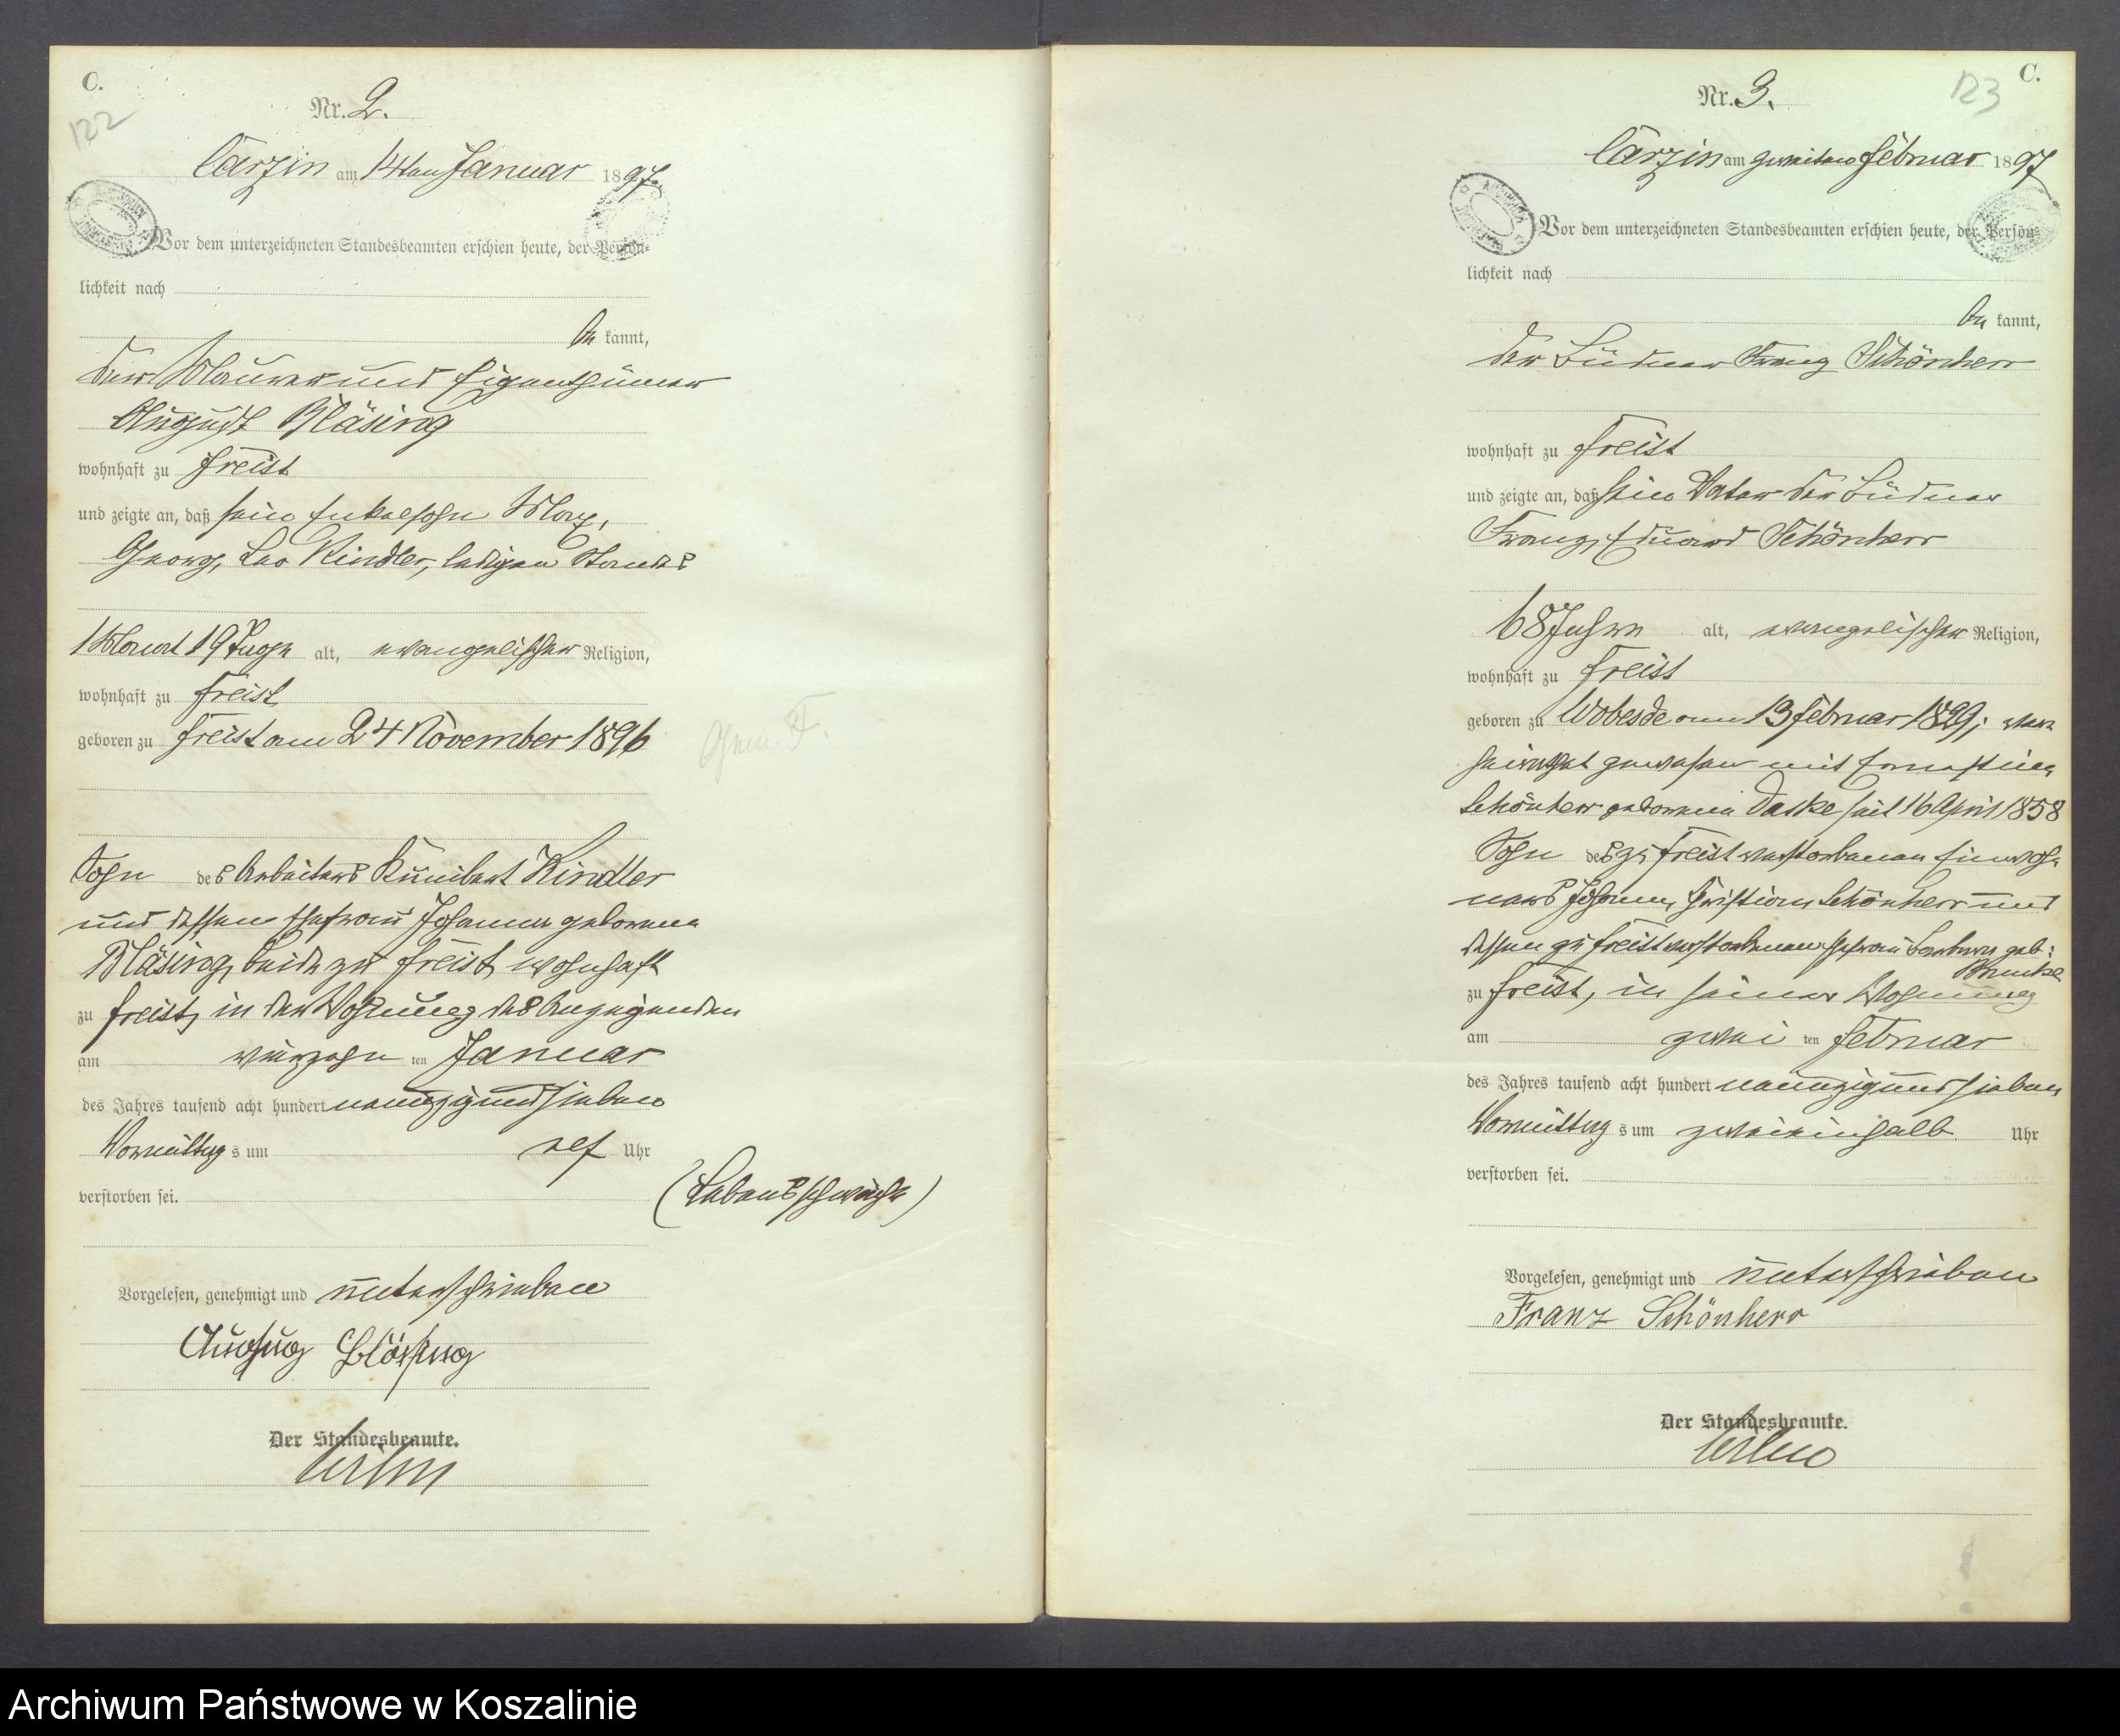 C.
122
Nr. 2.
Carzin am 14ten Januar 1897.
Vor dem unterzeichneten Standesbeamten erschien heute, der Persön-
lichkeit nach
be kannt,
der Maurer und Eigenthümer
August Bläsing
wohnhaft zu Freist
und zeigte an, daß sein Enkelsohn Max,
Georg, Leo Kindler, ledigen Standes
1 Monat 19 Tage alt, evangelischer Religion,
wohnhaft zu Freist
geboren zu Freist am 24 November 1896
Sohn des Arbeiters Kunibert Kindler
und dessen Ehefrau Johanna geborene
Bläsing, beide zu Freist wohnhaft
zu Freist, in der Wohnung des Anzeigenden
am vierzehn ten Januar
des Jahres tausend acht hundert neunzig und sieben
Vormittag s um elf Uhr
verstorben sei.
(Lebensschwäche)
Vorgelesen, genehmigt und unterschrieben
Bläsing
Der Standesbeamte.
C.
123
Nr. 3.
Carzin am zweiten Februar 1897
Vor dem unterzeichneten Standesbeamten erschien heute, der Persön-
lichkeit nach
be kannt,
der Büdner Franz Schönherr
wohnhaft zu Freist
und zeigte an, daß sein Vater der Büdner
Franz, Eduard Schönherr
68 Jahre alt, evangelischer Religion,
wohnhaft zu Freist
geboren zu Wobesde am 13 Februar 1829; ver-
heirathet gewesen mit Ernestine
Schönherr geborene Daske seit 16 April 1858
Sohn des zu Freist verstorbenen Einwoh-
ners Johann, Christian Schönherr und
dessen zu Freist verstorbenen Ehefrau geb:
zu Freist, in seiner Wohnung
am zwei ten Februar
des Jahres tausend acht hundert neunzig und sieben
Vormittag s um zweieinhalb Uhr
verstorben sei.
Vorgelesen, genehmigt und unterschrieben
Franz Schönherr
Der Standesbeamte.
Archiwum Państwowe w Koszalinie